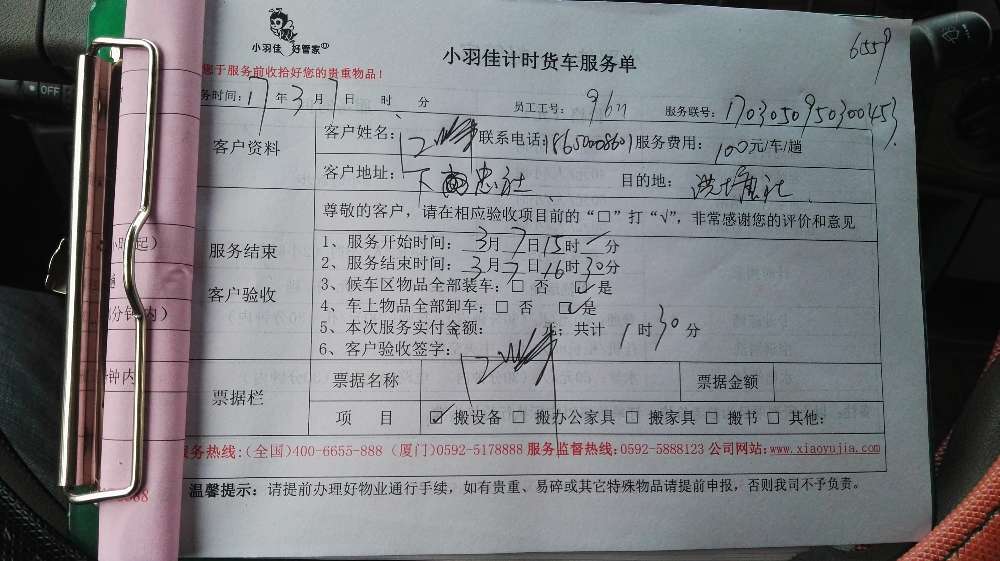 小羽佳 好管家
小羽佳计时货车服务单
6559
您于服务前收拾好您的贵重物品!
务时间:17年3月7日 时 分 员工工号: 服务联号:1703050950300453
客户资料
客户姓名: 联系电话:18650008601 服务费用:100元/车/趟
客户地址:下忠社 目的地:
尊敬的客户,请在相应验收项目前的“□”打“√”,非常感谢您的评价和意见
服务结束
客户验收
1、服务开始时间:3月7日15时 分
2、服务结束时间:3月7日16时30分
3、候车区物品全部装车:□ 否 ☑是
4、车上物品全部卸车:□ 否 ☑是
5、本次服务实付金额: 元;共计 1时30分
6、客户验收签字:
票据栏
票据名称 票据金额
项 目 ☑搬设备 □ 搬办公家具 □ 搬家具 □ 搬书 □ 其他:
服务热线:(全国)400-6655-888 (厦门)0592-5178888 服务监督热线:0592-5888123 公司网站:www.xiaoyujia.com
温馨提示:请提前办理好物业通行手续,如有贵重、易碎或其它特殊物品请提前申报,否则我司不予负责。
OFF
起)
分钟内)
钟内
888